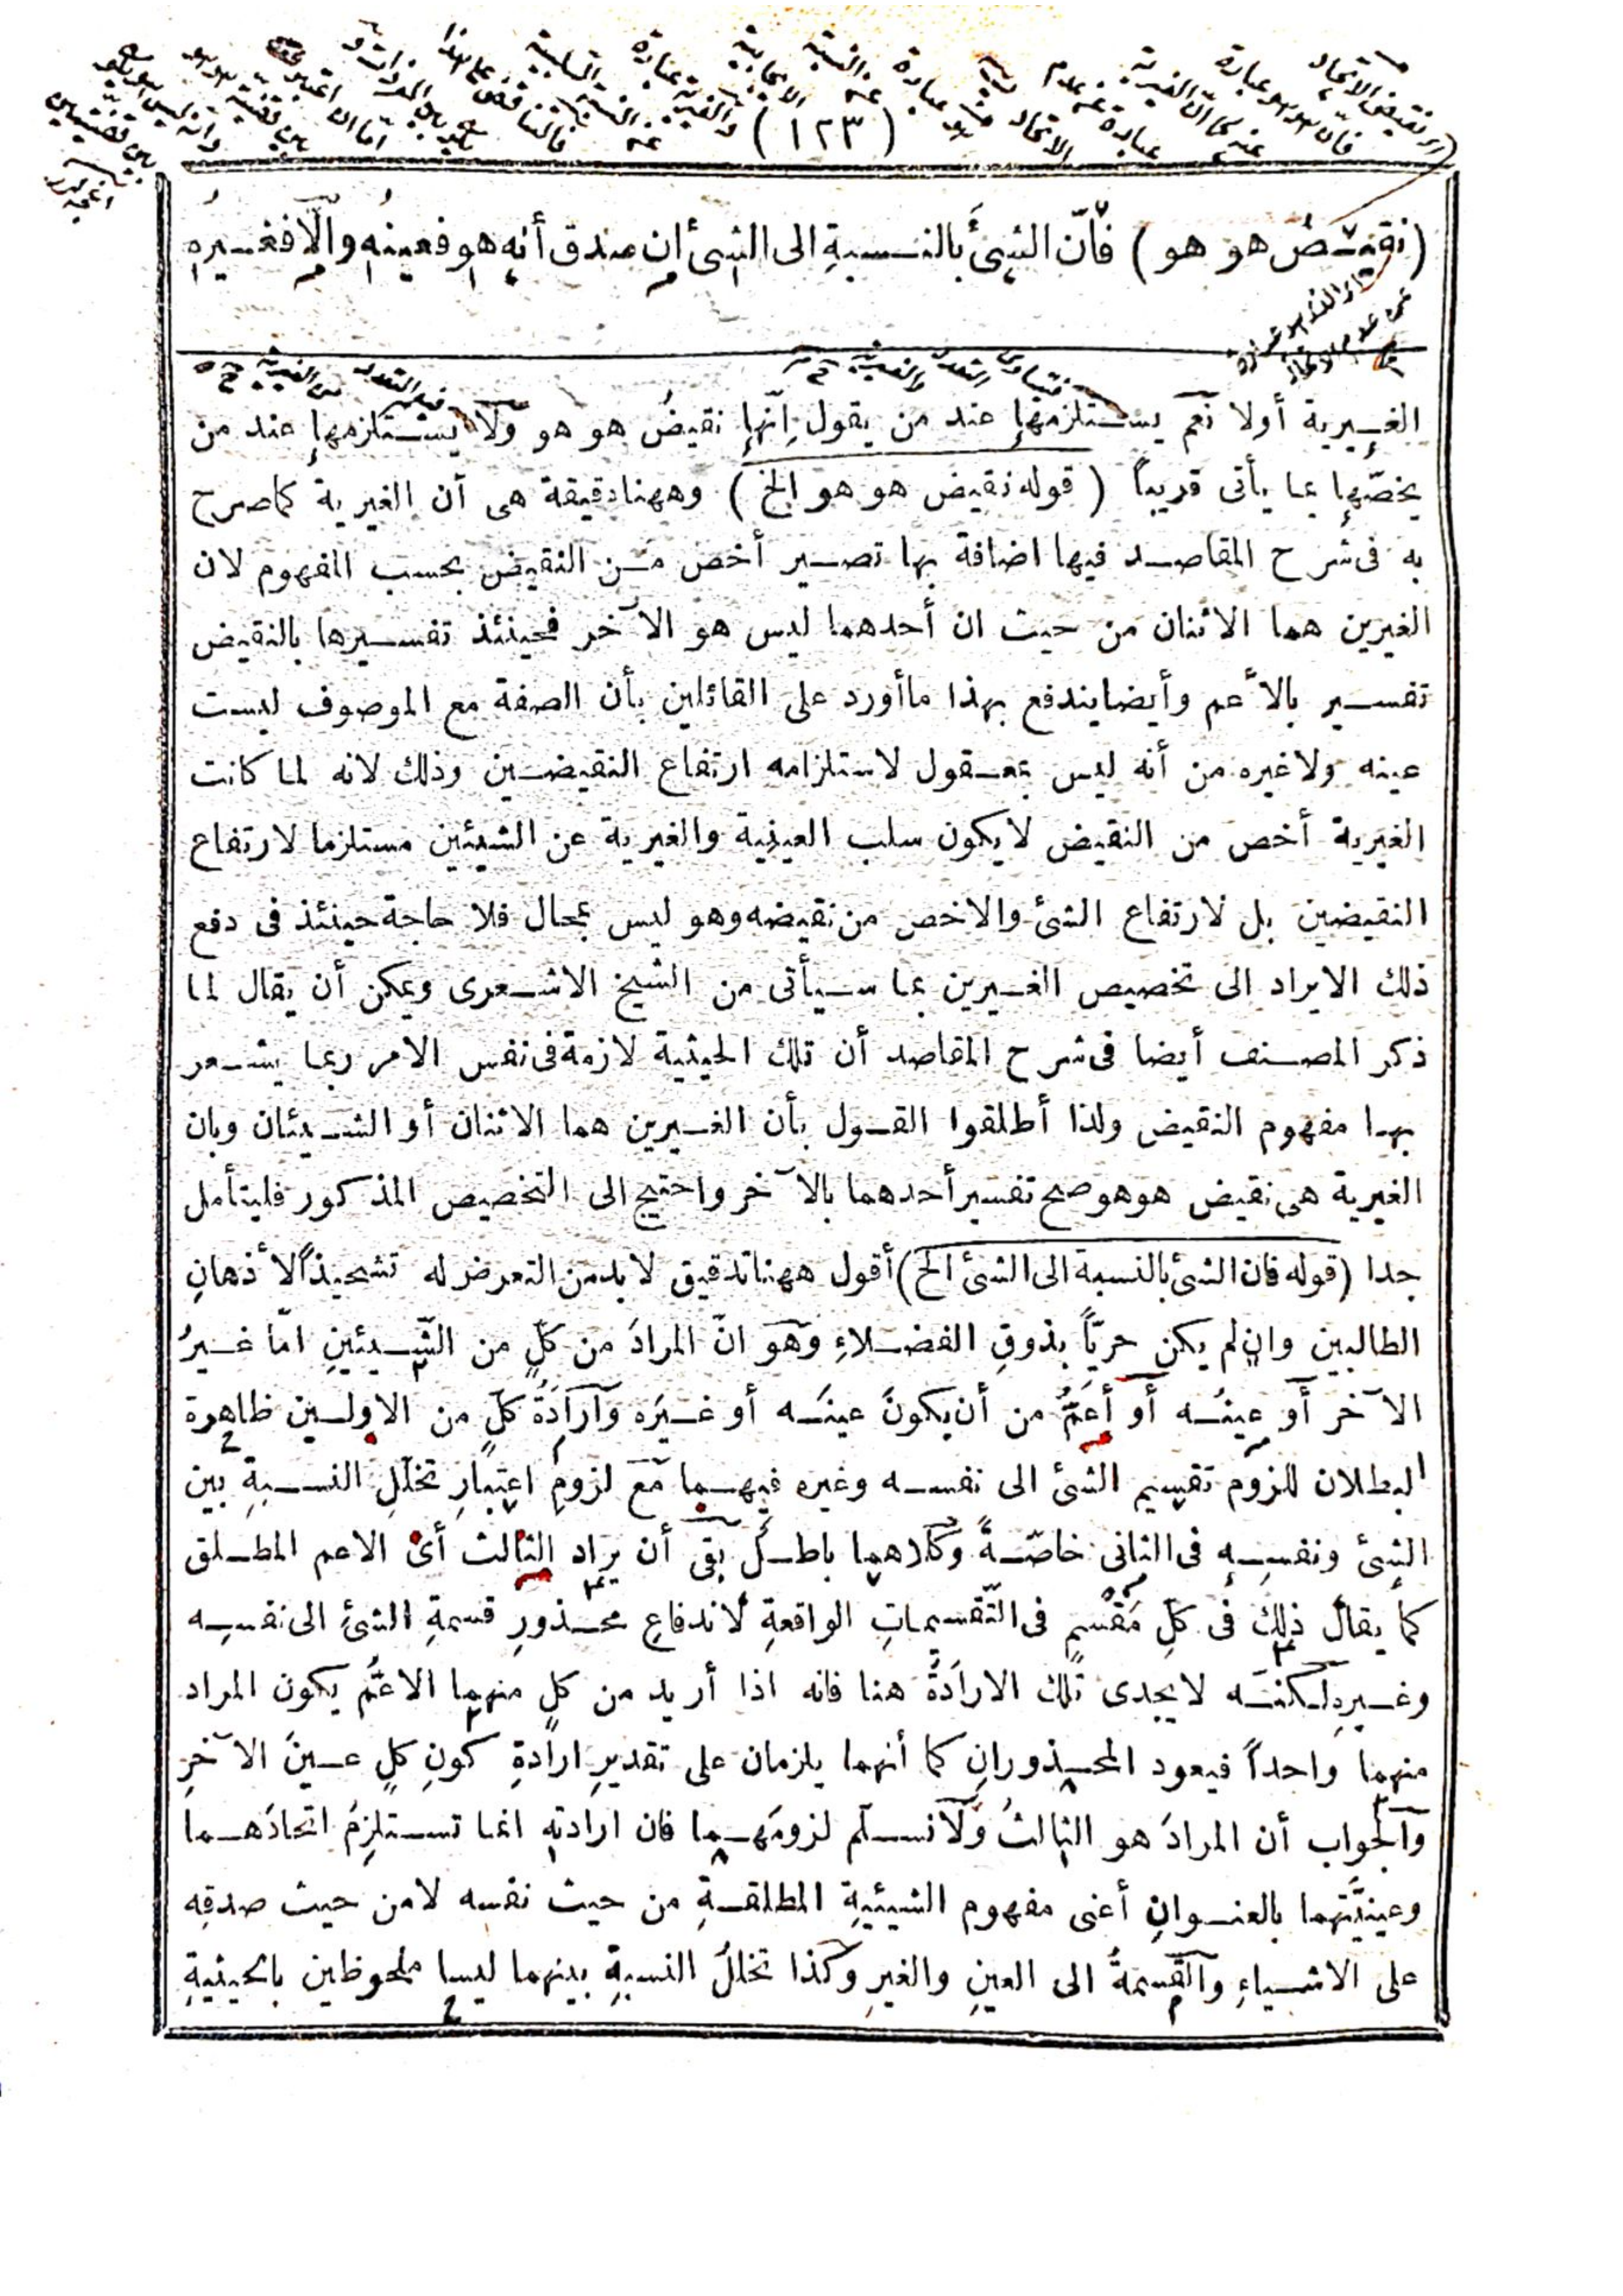 (١٢٣)
(نقيض هو هو) فانّ الشئَ بالنسبةِ الى الشئ ان صدق أنه هو فعينُه والّا فغيرُه
الغيرية أولا نعم يستلزمها عند من يقول اِنّها نقيضُ هو هو ولا يستلزمها عند من
يخصّها بما يأتى قريباً (قوله نقيض هو هو الخ) وههنا دقيقة هى أن الغيرية كما صرح
به فى شرح المقاصد فيها اضافة بها تصير أخص من النقيض بحسب المفهوم لان
الغيرين هما الاثنان من حيث ان أحدهما ليس هو الآخر فحينئذ تفسيرها بالنقيض
تفسير بالأعم وأيضا يندفع بهذا ما أورد على القائلين بأن الصفة مع الموصوف ليست
عينه ولا غيره من أنه ليس بمعقول لاستلزامه ارتفاع النقيضين وذلك لانه لما كانت
الغيرية أخص من النقيض لا يكون سلب العينية والغيرية عن الشيئين مستلزما لارتفاع
النقيضين بل لارتفاع الشئ والاخص من نقيضه وهو ليس بمحال فلا حاجة حينئذ فى دفع
ذلك الايراد الى تخصيص الغيرين بما سيأتى من الشيخ الاشعرى ويمكن أن يقال لما
ذكر المصنف أيضا فى شرح المقاصد أن تلك الحيثية لازمة فى نفس الامر ربما يشعر
بها مفهوم النقيض ولذا أطلقوا القول بأن الغيرين هما الاثنان أو الشيئان وبان
الغيرية هى نقيض هو هو صح تفسير أحدهما بالآخر واحتيج الى التخصيص المذكور فليتأمل
جدا (قوله فان الشئ بالنسبة الى الشئ الخ) أقول ههنا تدقيق لا بد من التعرض له تشحيذاً لأذهانِ
الطالبين وان لم يكن حريّاً بذوقِ الفضلاءِ وهو انّ المرادَ من كلٍّ من الشّيئينِ امّا غيرُ
الآخر أو عينُه أو أعمُّ من أن يكونَ عينَه أو غيرَه وارادةُ كلٍّ من الاولين ظاهرة
البطلان للزوم تقسيم الشئ الى نفسه وغيره فيهما مع لزومِ اعتبارِ تخلّلِ النسبةِ بين
الشئ ونفسِه فى الثانى خاصّةً وكلاهما باطلٌ بقى أن يراد الثالث أىْ الاعم المطلق
كما يقالُ ذلك فى كلِّ مَقْسَمٍ فى التّقسيماتِ الواقعةِ لاندفاعِ محذورِ قسمةِ الشئِ الى نفسِه
وغيرِه لكنه لا يجدى تلك الارادةُ هنا فانه اذا أريد من كل منهما الاعمُّ يكون المراد
منهما واحداً فيعود المحذورانِ كما أنهما يلزمان على تقديرِ ارادةِ كونِ كلٍ عينَ الآخرِ
والجواب أن المرادَ هو الثالثُ ولا نسلّم لزومَهما فان ارادته انما تستلزمُ اتحادَهما
وعينيَّتهما بالعنوانِ أعنى مفهوم الشيئيةِ المطلقةِ من حيث نفسه لا من حيث صدقِه
على الاشياءِ والقسمةُ الى العينِ والغيرِ وكذا تخللُ النسبةِ بينهما ليسا ملحوظين بالحيثيةِ